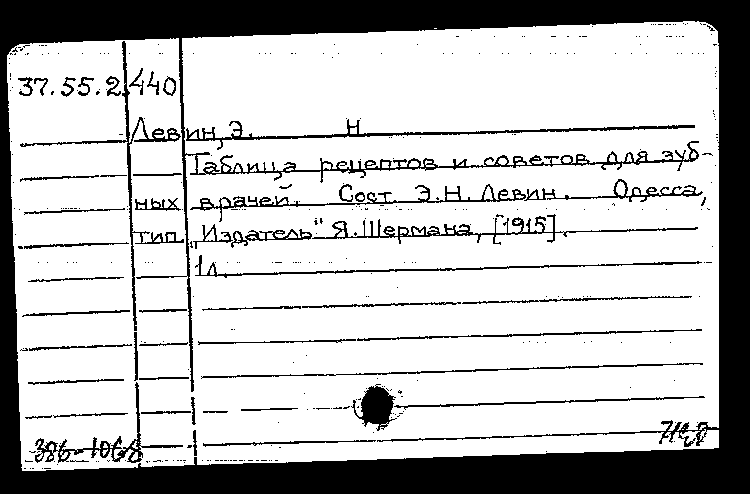 37.55.2.440
Левин, Э. Н
Таблица рецептов и советов для зуб-
ных врачей. Сост. Э.Н. Левин. Одесса,
тип. "Издатель" Я. Шермана, [1915].
1 л.
386-1068